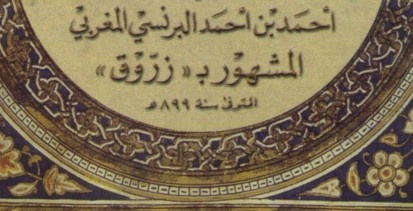 أحمد بن أحمد البرنسي المغربي
المشهور بـ « زرّوق »
المتوفى سنة ٨٩٩ هـ